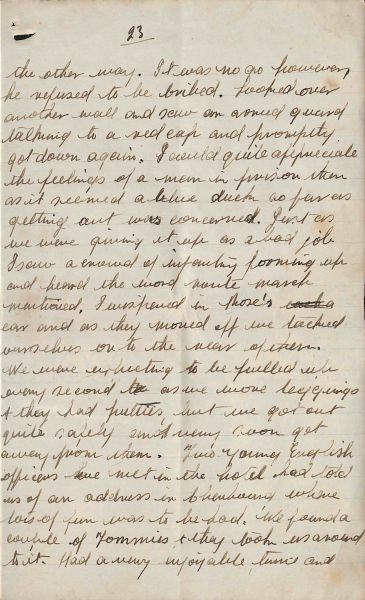 23
the other way. It was no go however,
he refused to be bribed. Looked over
another wall and saw an armed guard
talking to a red cap and promptly
got down again. I could quite appreciate
the feelings of a man in prison then
as it seemed a blue duck as far as
getting out was concerned. Just as
we were giving it up as a bad job
I saw a crowd of infantry forming up
and heard the word route march
mentioned. I whispered in Mose's
ear and as they moved off we tacked
ourselves on to the rear of them.
We were expecting to be pulled up
every second as we wore leggings
& they had putties, but we got out
quite safely and very soon got
away from them. Two young English
officers we met in the hotel had told
us of an address in Cherbourg where
lots of fun was to be had. We found a
couple of Tommies & they took us around
to it. Had a very enjoyable time and